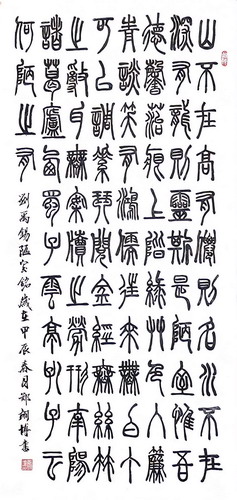 山不在高有僊則名水不在
深有龍則靈斯是陋室惟吾
德馨菭痕上階綠艸色入簾
青談笑有鴻儒往來無白丁
可以調素琴閱金經無絲竹
之亂耳無案牘之勞形南陽
諸葛廬西蜀子雲亭孔子云
何陋之有
劉禹錫陋室銘歲在甲辰春月鄭博書